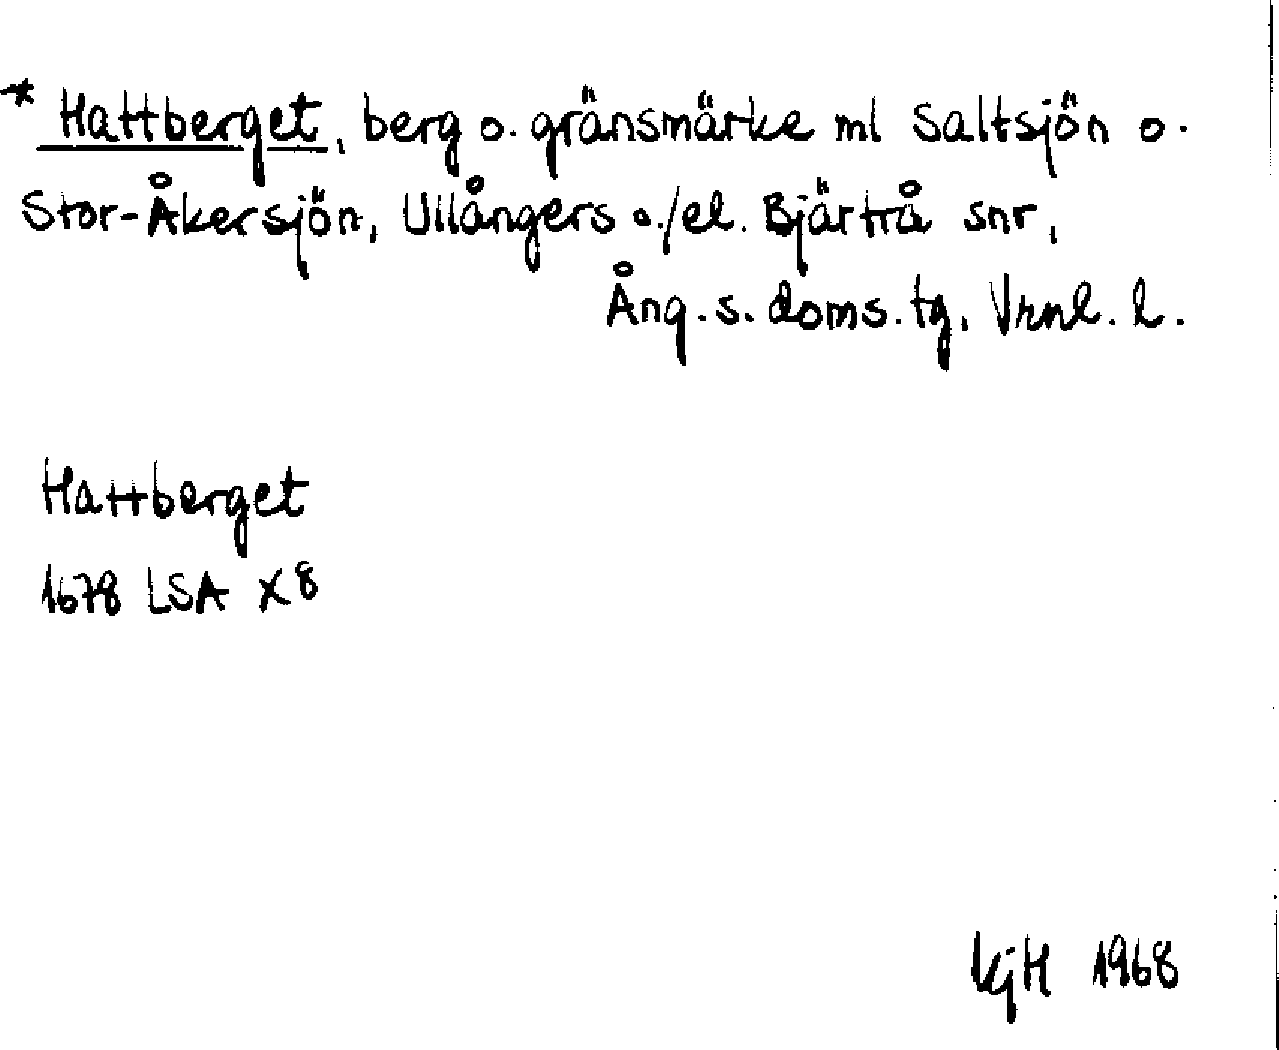 * Hattberget, berg o. gränsmärke ml Saltsjön o.
Stor-Åkersjön, Ullångers o./el. Bjärtrå snr,
Ång. s. doms. tg, Vrnl. l.
Hattberget
1678 LSA X8
KjH 1968